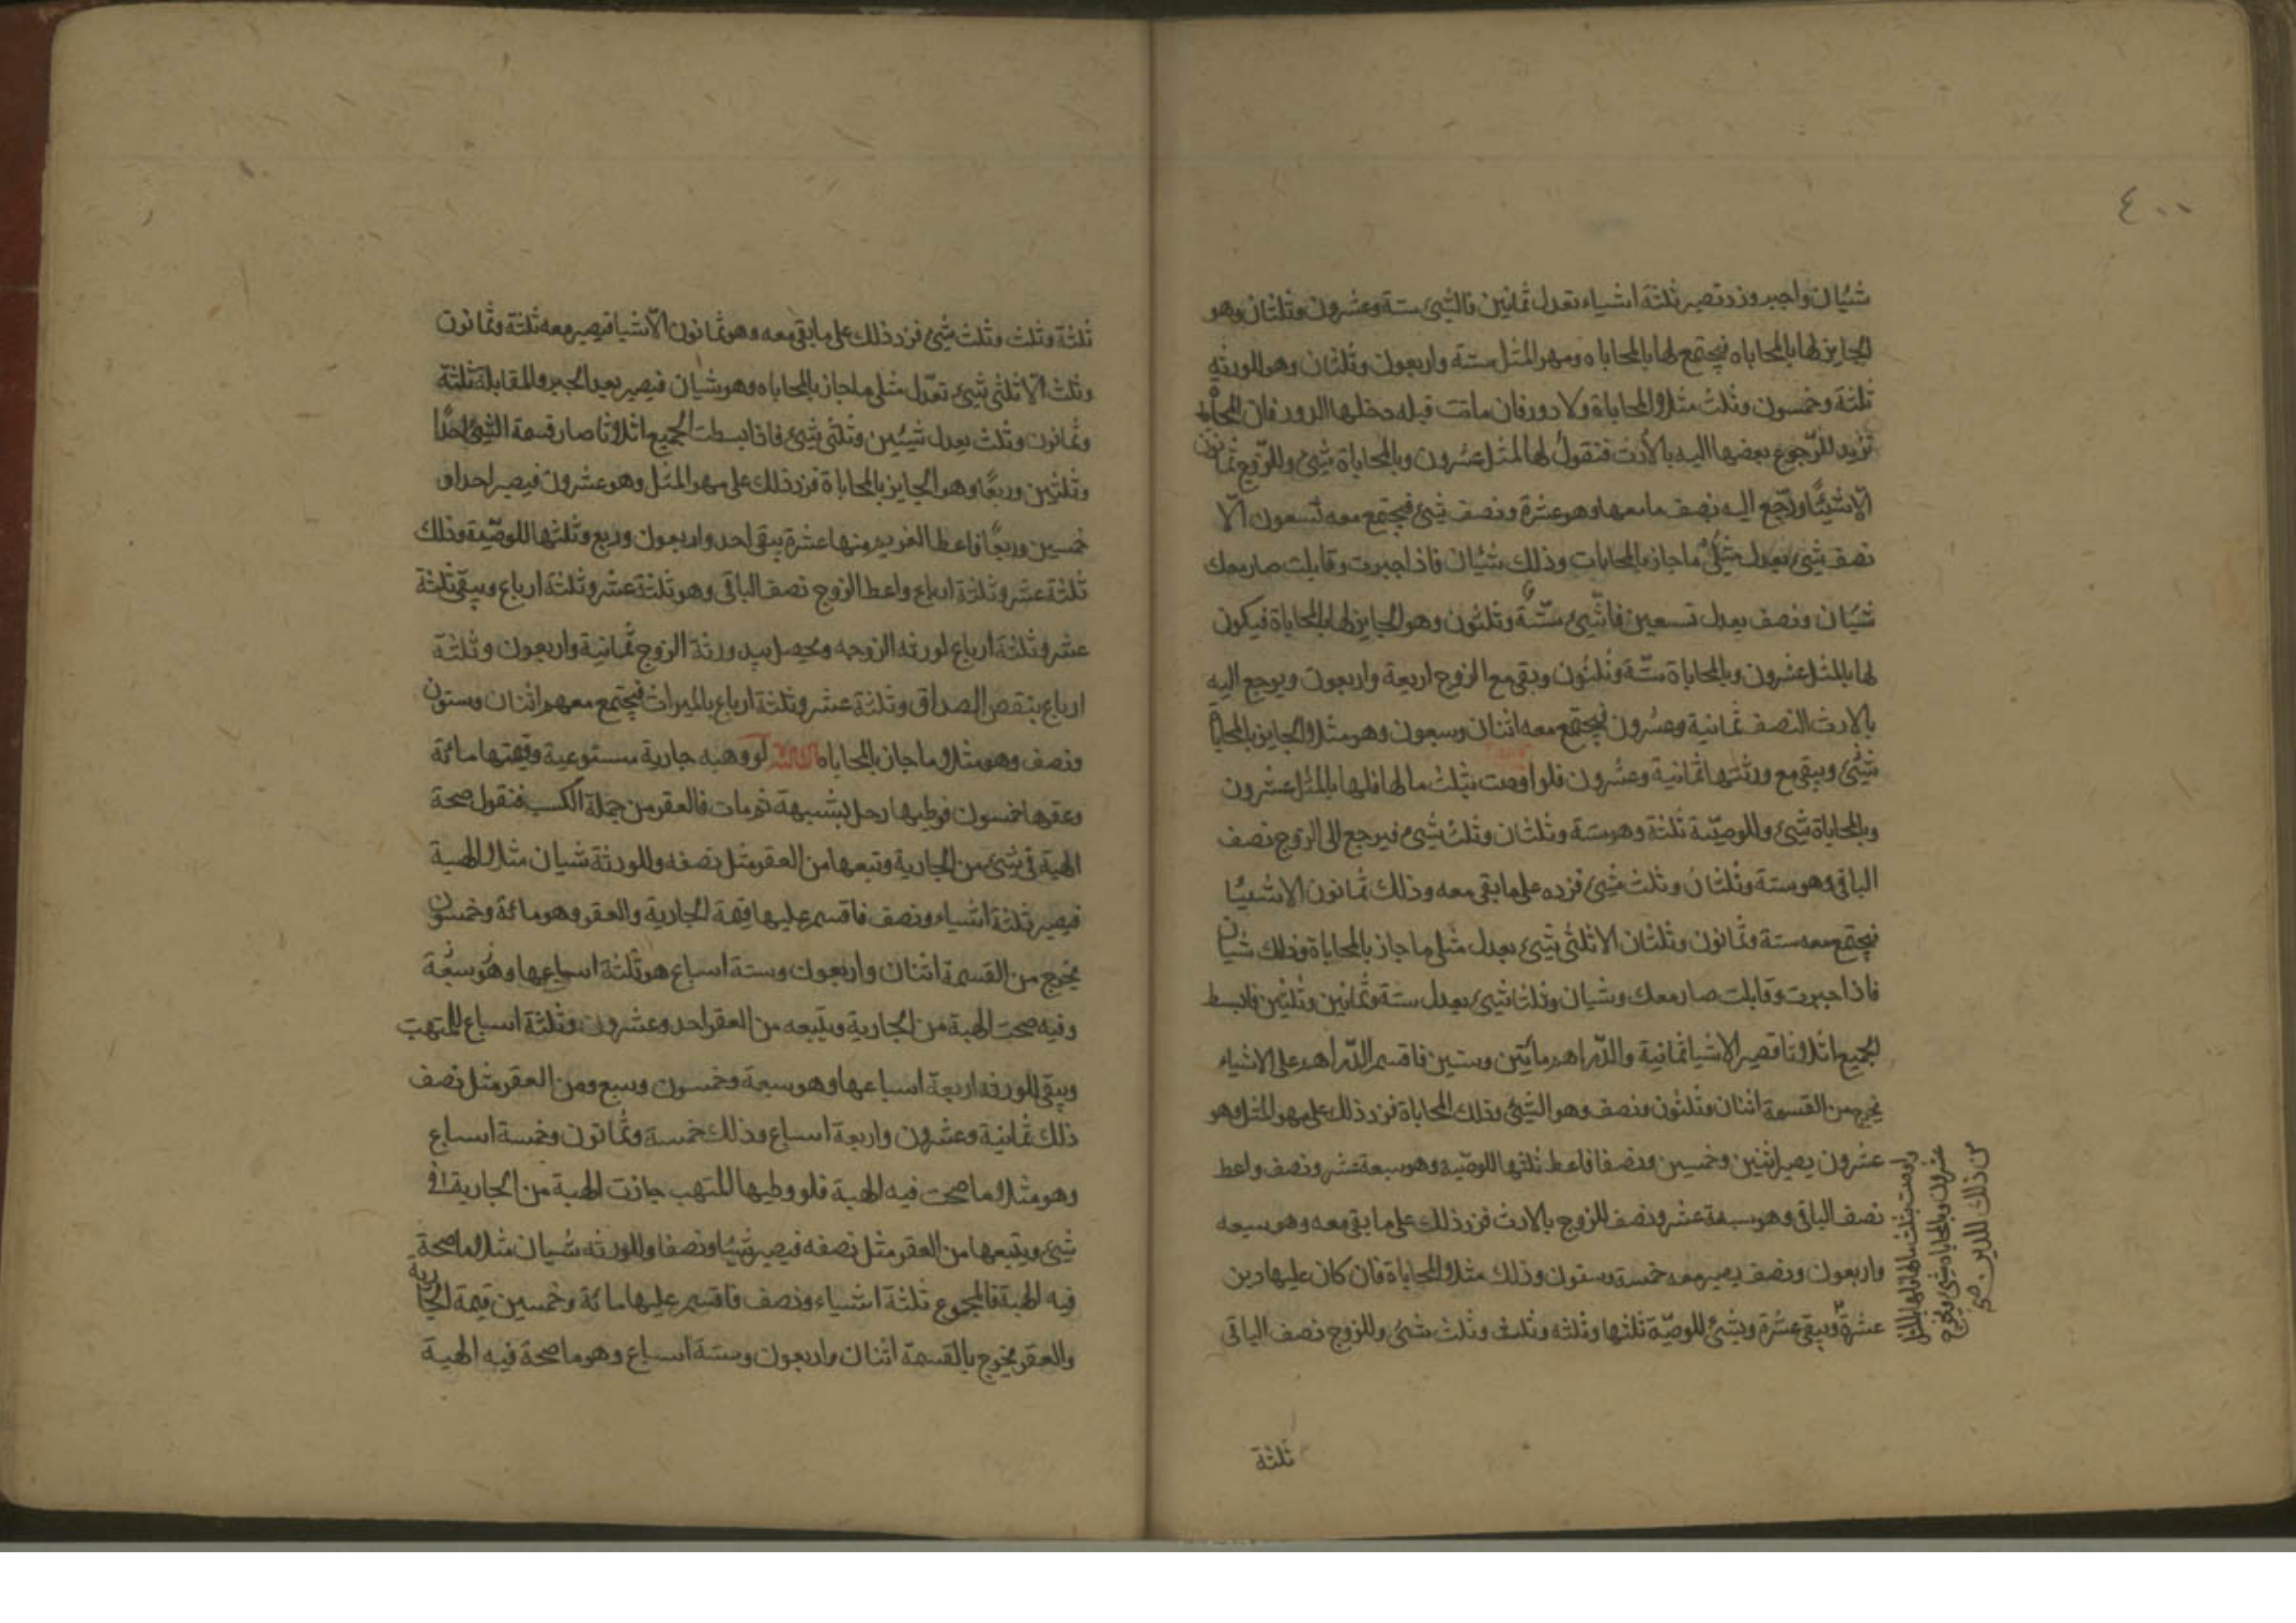 ٤٠٠
شيئان واجبر وزد تصير ثلثة اشياء تعدل ثمانين فالشئ ستة وعشرون وثلثان وهو
الجايز لها بالمحاباه فيجتمع لها بالمحاباه ومهر المثل ستة واربعون وثلثان وهو للورثة
ثلثة وخمسون وثلث مثلا المحاباة ولا دور فان ماتت قبله دخلها الدور فان المحاباة
تزيد للرجوع بعضها اليه بالارث فنقول لها المثل عشرون وبالمحاباة شئ وللزوج ثمانون
الا شيئا ورجع اليه نصف ما معها وهو عشرة ونصف شئ فيجتمع معه تسعون الا
نصف شئ يعدل مثلى ما جاز بالمحابات وذلك شيئان فاذا جبرت وقابلت صار معك
شيئان ونصف يعدل تسعين فالشئ ستة وثلثون وهو الجايز لها بالمحاباة فيكون
لها بالمثل عشرون وبالمحاباة ستة وثلثون وبقى مع الزوج اربعة واربعون ويرجع اليه
بالارث النصف ثمانية وعشرون فيجتمع معه اثنان وسبعون وهو مثلا الجايز بالمحاباة
شئ ويبقى مع ورثتها ثمانية وعشرون فلو اوصت بثلث مالها فلها بالمثل عشرون
وبالمحاباة شئ وللوصية ثلثة وهو ستة وثلثان وثلث شئ فيرجع الى الزوج نصف
الباقى وهو ستة وثلثان وثلث شئ فزده على ما بقى معه وذلك ثمانون الا شيئا
فيجتمع معه ستة وثمانون وثلثان الا ثلثى شئ يعدل مثلى ما جاز بالمحاباة وذلك شيئان
فاذا جبرت وقابلت صار معك وشيئان وثلثا شئ يعدل ستة وثمانين وثلثين فابسط
الجميع اثلاثا فتصير الاشيا ثمانية والدراهم مأتين وستين فاقسم الدراهم على الاشياء
يخرج من القسمة اثنان وثلثون ونصف وهو الشئ وتلك المحاباة فزد ذلك على مهر المثل وهو
عشرون يصير اثنين وخمسين ونصفا فاعط ثلثها للوصية وهو سبعة عشر ونصف واعط
نصف الباقى وهو سبعة عشر ونصف للزوج بالارث فزد ذلك على ما بقى معه وهو سبعه
واربعون ونصف يصير معه خمسة وستون وذلك مثلا المحاباة فان كان عليها دين
عشرة ويبقى عشرة وشئ للوصية ثلثها وثلثه وثلث وثلث شئ وللزوج نصف الباقى
واوصت بثلث مالها فلها بالمثل
عشرون وبالمحاباه شئ يخرج
من ذلك للدين صح
ثلثة
ثلثة وثلث وثلث شئ فزد ذلك على ما بقى معه وهو ثمانون الا شيا فيصير معه ثلثة وثمانون
وثلث الا ثلثى شئ تعدل مثلى ما جاز بالمحاباه وهو شيان فيصير بعد الجبر والمقابلة ثلثة
وثمانون وثلث يعدل شيئين وثلثى شئ فاذا بسطت الجميع اثلاثا صار قسمة الشئ احدا
وثلثين وربعا وهو الجايز بالمحاباة فزد ذلك على مهر المثل وهو عشرون فيصير احدا و
خمسين وربعا فاعط الغريم منها عشرة يبقى احد واربعون وربع وثلثها للوصية وذلك
ثلثة عشر وثلثة ارباع واعط الزوج نصف الباقى وهو ثلثة عشر وثلثة ارباع ويبقى ثلثة
عشر وثلثة ارباع لورثه الزوجه ويحصل بيد ورثة الزوج ثمانية واربعون وثلثة
ارباع بنقص الصداق وثلثة عشر وثلثة ارباع بالميراث فيجتمع معهم اثنان وستون
ونصف وهو مثلا ما جاز بالمحاباه الثالثة لو وهبه جارية مستوعبة وقيمتها مائة
وعقرها خمسون فوطيها رجل بشبهة ثم مات فالعقر من جملة الكسب فنقول صحة
الهبة فى شئ من الجارية وتبعها من العقر مثل نصفه وللورثة شيان مثلا الهبة
فيصير ثلثة اشياء ونصف فاقسم عليها قيمة الجارية والعقر وهو مائة وخمسون
يخرج من القسمة اثنان واربعون وستة اسباع هو ثلثة اسباعها وهو سبعة
وفيه صحت الهبة من الجارية ويتبعه من العقر احد وعشرون وثلثة اسباع للمتهب
ويبقى للورثه اربعة اسباعها وهو سبعة وخمسون وسبع ومن العقر مثل نصف
ذلك ثمانية وعشرون واربعة اسباع وذلك خمسة وثمانون وخمسة اسباع
وهو مثلا ما صحت فيه الهبة فلو وطيها المتهب جازت الهبة من الجارية فى
شئ ويتبعها من العقر مثل نصفه فيصير شيئا ونصفا وللورثه شيان مثلا ما صحة
فيه الهبة فالمجموع ثلثة اشياء ونصف فاقسم عليها مائة وخمسين قيمة الجارية
والعقر يخرج بالقسمة اثنان واربعون وستة اسباع وهو ما صحة فيه الهبة